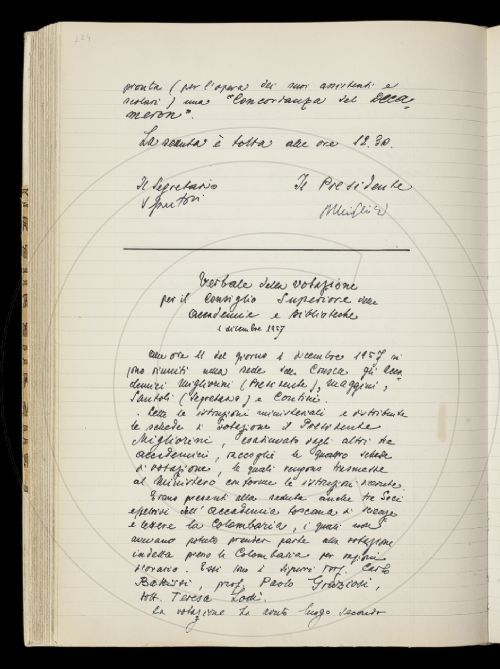 224
pronta (per l'opera dei suoi assistenti e
scolari) una "Concordanza del Deca-
meron".
La seduta è tolta alle ore 12.30.
Il Segretario Il Presidente
Verbale della votazione
per il Consiglio Superiore delle
accademie e biblioteche
1 dicembre 1957
Alle ore 11 del giorno 1 dicembre 1957 si
sono riuniti nella sede della Crusca gli Acca-
demici Migliorini (Presidente), Maggini,
Santoli (Segretario) e Contini.
Lette le istruzioni ministeriali e distribuite
le schede di votazione il Presidente
Migliorini, coadiuvato dagli altri tre
accademici, raccoglie le quattro schede
di votazione, le quali vengono trasmesse
al Ministero conforme le istruzioni ricevute.
Erano presenti alla seduta anche tre Soci
effettivi dell'Accademia toscana di scienze
e lettere la Colombaria, i quali non
avevano potuto prender parte alla votazione
indetta presso la Colombaria per ragioni
d'orario. Essi sono i signori prof. Carlo
Battisti, prof. Paolo Graziosi,
dott. Teresa Lodi.
La votazione ha avuto luogo secondo